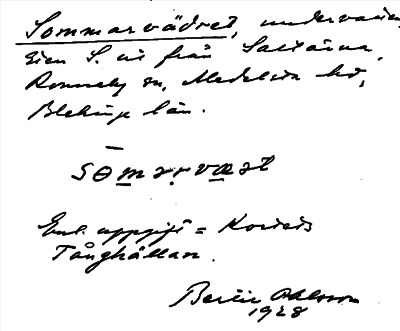 Sommarvädret, undervattens
sten S. ut från Saltärna,
Ronneby sn, Medelsta hd,
Blekinge län.
sɵmarvæət
Enl. uppgift =
Tånghällan.
Bertil Ohlsson
1928